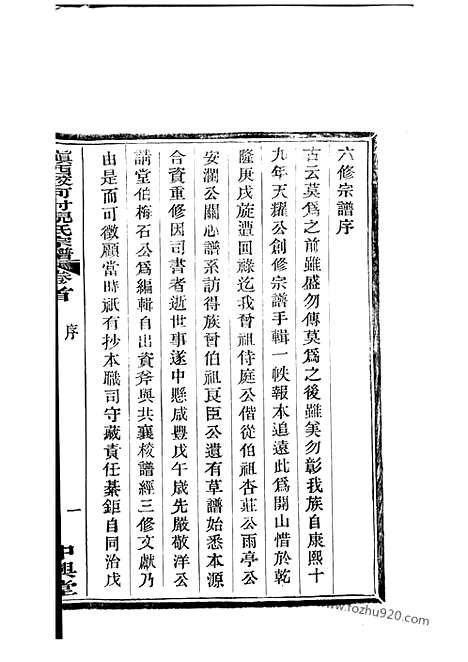 六修宗譜序
古云莫爲之前雖盛勿傳莫爲之後雖美勿彰我族自康熙十
九年天擢公創修宗譜手輯一帙報本追遠此爲開山惜於乾
隆庚戌旋遭回祿迄我曾祖侍庭公偕從伯祖杏莊公雨亭公
安瀾公關心譜系訪得族曾伯祖良臣公遺有草譜始悉本源
合資重修因司書者逝世事遂中懸咸豐戊午歲先嚴敬洋公
請堂伯梅石公爲編輯自出資斧與共襄校譜經三修文獻乃
由是而可徵顧當時祇有抄本職司守藏責任綦鉅自同治戊
倪氏宗譜
卷首
序
一
中興堂
www.fozhu920.com